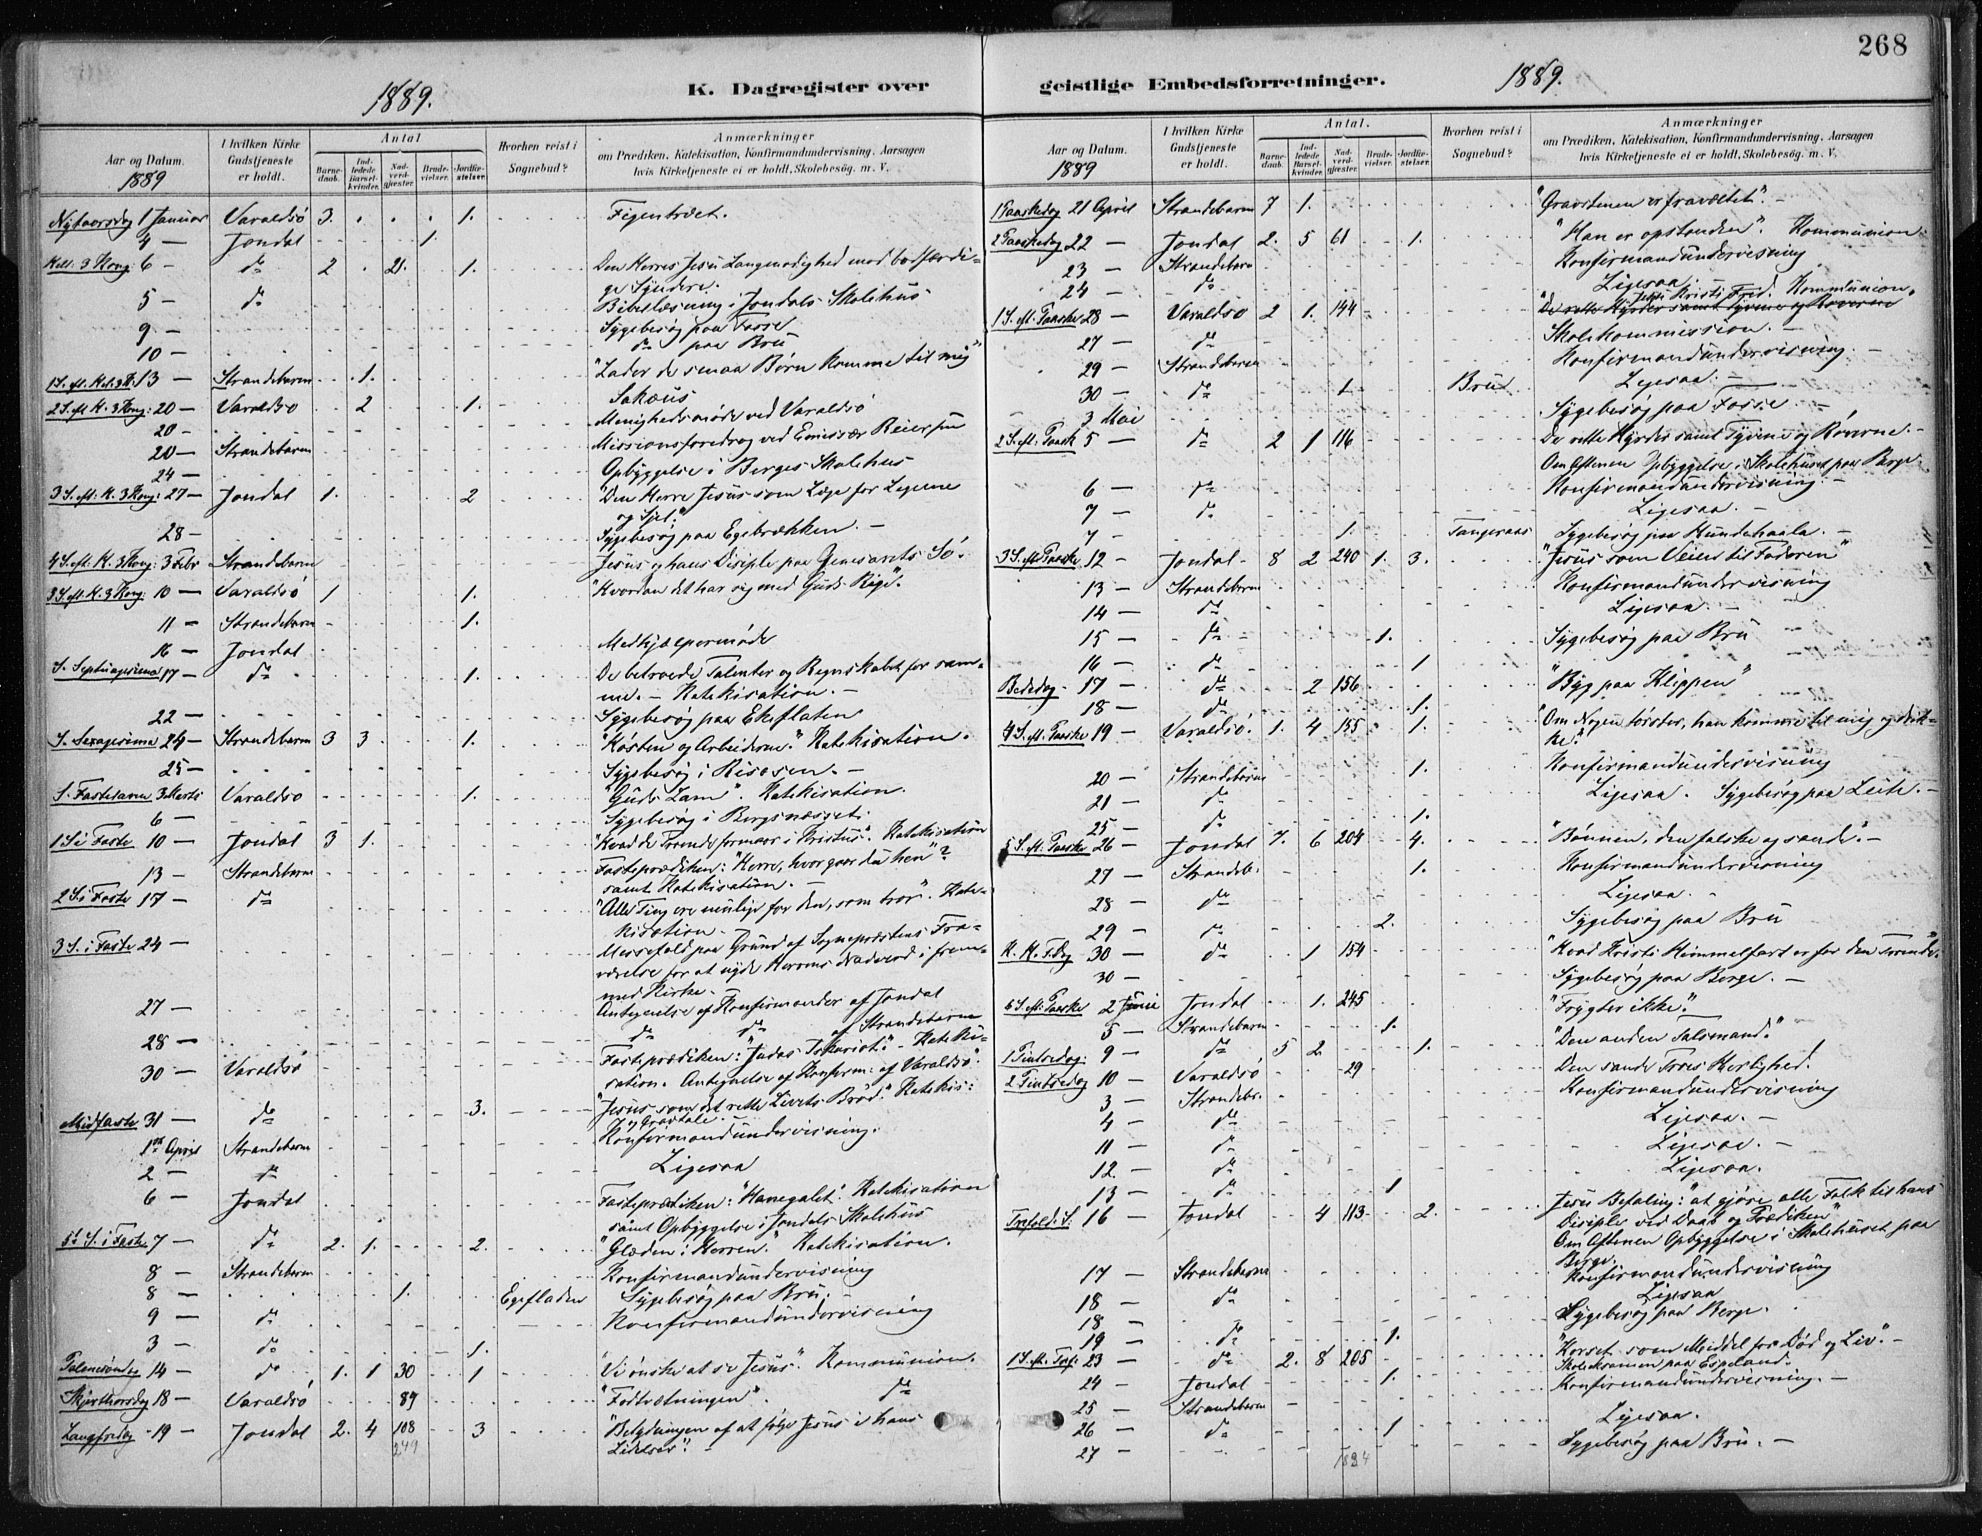 268
1889.
K. Dagregister over
geistlige Embedsforretninger.
1889.
Aar og Datum.
1889
I hvilken Kirke Gudstjeneste er holdt.
Antal
Barne-daab.
Ind-ledede Barsel-kvinder.
Nad-verd-gjester.
Brude-vielser.
Jordfæ-stelser.
Hvorhen reist i Sognebud?
Anmærkninger
om Prædiken, Katekisation, Konfirmandundervisning, Aarsagen
hvis Kirketjeneste ei er holdt, Skolebesøg. m. V.
Nytaarsdag 1 Januar Varaldsö 3. 1. Figentræet.
4 — Jondal 1.
Hell. 3 Kong: 6 — do 2 21. 1. Den Herres Jesu Langmodighed mod bodfærdi-
ge Syndere.
5 — do Bibellæsning i Jondals Skolehus
9 — Sygebesøg paa Fosse
10 — do paa Bru
1 S. eft. Hel. 3 K. 13 — Strandebarm 1. "Lader de smaa Børn komme til mig"
2 S. eft H. 3 Kong: 20 — Varaldsö 2 1. Sakæus
20 — Menighedsmøde ved Varaldsö
20 — Strandebarm Missionsforedrag ved Emissær Reiersen
24 — Opbyggelse i Berges Skolehus
3 S. eft: H. 3 Kong: 27 — Jondal 1. 2 "Den Herre Jesus som Læge for Legeme
og Sjel."
28 — Sygebesøg paa Egebrækken. —
4 S. eft. H. 3 Kong: 3 Febr Strandebarm Jesus og hans Disiple paa Genesarets Sö.
5 S. eft. H. 3 Kong: 10 — Varaldsö 1 1. "Hvordan det har sig med Guds Rige".
11 — Strandebarm 1.
16 — Jondal Medhjælpermøde
S. Septuagesima 17 — do 1. De betroede Talenter og Regnskabet for sam-
me. — Katekisation. —
22 — Sygebesøg paa Ekeflaten
S. Sexagesima 24 — Strandebarm 3 3. 1. "Høsten og Arbeiderne." Katekisation.
25 — Sygebesøg i Risosen. —
S. Fastelavn 3 Marts Varaldsö 1. "Guds Lam". Katekisation.
6 — Sygebesøg i Bergsnæsset:
1 S i Faste 10 — Jondal 3 1. "Hvad de Troende formaar i Kristus". Katekisation
13 — Strandebarm Fasteprædiken: "Herre, hvor gaar du hen"?
samt Katekisation. —
2 S. i Faste 17 — do "Alle Ting ere mulige for den, som tror". Kate-
kisation.
3 S. i Faste 24 — Messefald paa Grund af Sognepræstens Fra-
værelse for at nyde Herrens Nadverd i frem-
med Kirke.
27 — Antegnelse af Konfirmander af Jondal
28 — do do af Strandebarm
30 — Varaldsö Fasteprædiken: "Judas Iskariot". — Kateki-
sation. Antegnelse af Konfirm: af Varaldsö.
Midfaste 31 — do 3. "Jesus som det rette Livets Brød". Katekis:
og Gravtale.
1ste April Strandebarm Konfirmandundervisning.
2 — do Ligesaa
6 — Jondal Fasteprædiken: "Hanegalet". Katekisation
samt Opbyggelse i Jondals Skolehus
5te S. i Faste 7 — do 2. 1. 2. "Glæden i Herren." Katekisation.
8 — Strandebarm Konfirmandundervisning
8 — 1. Egefladen Sygebesøg paa Bru.
9 — do Konfirmandundervisning
3 — do 1.
Palmesøndag 14 — do 1. 1 30 1 "Vi ønske at se Jesus". Kommunion.
Skjærthorsdag 18 — Varaldsö 89 "Fodtvætningen". do
Langfredag 19 — Jondal 2. 4 108 3 "Betydningen af at følge Jesus i hans
Lidelser".
249
Aar og Datum.
1889
I hvilken Kirke Gudstjeneste er holdt.
Antal.
Barne-daab.
Ind-ledede Barsel-kvinder.
Nad-verd-gjester.
Brude-vielser.
Jordfæ-stelser.
Hvorhen reist i Sognebud?
Anmærkninger
om Prædiken, Katekisation, Konfirmandundervisning, Aarsagen
hvis Kirketjeneste ei er holdt, Skolebesøg. m. V.
1 Paaskedag 21 April Strandebarm 7 1. "Gravstenen er fravæltet".
2 Paaskedag 22 — Jondal 2. 5 61 1. "Han er opstanden". Kommunion.
23 — Strandebarm Konfirmandundervisning
24 — do Ligesaa
1 S. eft. Paaske 28 — Varaldsö 2 1. 144 Jesu Kristi Fred. Kommunion.
"De rette Hyrder samt Tyvene og Røverne
27 — do Skolekommission. —
29 — Strandebarm Konfirmandundervisning.
30 — do 1 Bru Ligesaa. —
3 Mai Sygebesøg paa Fosse. —
2 S. eft: Paask 5 — do 2 1 116 De rette Hyrder samt Tyvene og Røverne. —
Om Aftenen Opbyggelse i Skolehuset paa Berge
6 — do Konfirmandundervisning. —
7 — do Ligesaa. —
7 — 1. Tangeraas Sygebesøg paa Hundehaala. —
3 S. eft Paaske 12 — Jondal 8 2 240 1. 3. "Jesus som Veien til Faderen"
13 — Strandebarm Konfirmandundervisning
14 — do Ligesaa. —
15 — do 1. Sygebesøg paa Bru
16 — do 1
Bededag 17 — do 2 156 "Byg paa Klippen"
18 — do 1.
4 S. eft. Paaske 19 — Varaldsö. 1. 4 155 1. "Om Nogen tørster, han komme til mig og drik-
ke."
20 — Strandebarm 1. Konfirmandundervisning
21 — do Ligesaa. Sygebesøg paa Leite. —
25 — do 1.
5 S. eft. Paaske 26 — Jondal 7. 6 204 4. "Bønnen, den falske og sande". —
27 — Strandeb. 1. Konfirmandundervisning
28 — do Ligesaa.
29 — do 2. Sygebesøg paa Bru
K. H. F. Dag 30 — do 1 154 "Hvad Kristi Himmelfart er for den Troende.
30 — Sygebesøg paa Berge. —
6 S. eft. Paaske 2 Juni Jondal 1. 245 "Frygter ikke".
5 — Strandebarm 1. "Den anden Talsmand."
1 Pintsedag: 9 — do 5 2 1.
2 Pintsedag 10 — Varaldsö 29 Den sande Troes Herlighed.
3 — Strandebr. Konfirmandundervisning
4 — do Ligesaa. —
11 — do Ligesaa. —
12. do Ligesaa.
13 — do 1
Trefold. S. 16 — Jondal 4 113 2. Jesu Befaling: "at gjøre alle Folk til hans
Disiple ved Daab og Prædiken"
Om Aftenen Opbyggelse i Skolehuset paa
Berge.
17 — Strandebarm Konfirmandundervisning
18 — do Ligesaa
18 — Sygebesøg paa Berge.
19 — do 1.
1 S. eft. Tref. 23 — do 2. 8 205 "Korset som Middel for Død og Liv". —
Skoleksamen paa Espeland.
24 — Jondal 1. Konfirmandundervisning. —
25 — Strandebarm Ligesaa.
26 — do 1
27 — Sygebesøg paa Bru. —